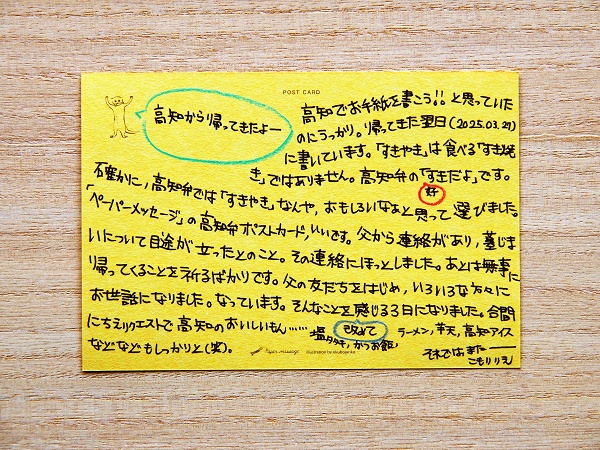 POST CARD
高知から帰ってきたよー
高知でお手紙を書こう!!と思っていた
のにうっかり。帰ってきた翌日(2025.03.27)
に書いています。「すきやき」は食べる「すき焼
き」ではありません。高知弁の「すきだよ」です。
好
確かに、高知弁では「すきやき」なんや、おもしろいなぁと思って選びました。
「ペーパーメッセージ」の高知弁ポストカード、いいです。父から連絡があり、墓じま
いについて目途が立ったとのこと。その連絡にほっとしました。あとは無事に
帰ってくることを祈るばかりです。父の友だちをはじめ、いろいろな方々に
お世話になりました。なっています。そんなことを感じる3日になりました。合間
改めて
にちえリクエストで高知のおいしいもん……塩タタキ,かつお飯,ラーメン,芋天,高知アイス
などなどもしっかりと(笑)。
それではまたー
こもりりえ
Paper message illustration by